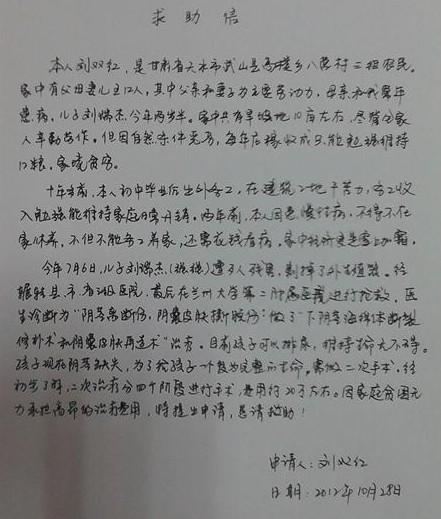 求助信
本人刘双红,是甘肃省天水市武山县马力乡八营村二组农民。
家中有父母妻儿,其中父亲和妻子为主要劳动力,母亲和我常年
患病,儿子刘瑞杰今年两岁半。家中共有旱坡地10亩左右,尽管全家
人辛勤劳作。但因自然条件恶劣,每年庄稼收成只能勉强维持
口粮,家境贫穷。
十年前,本人初中毕业后出外务工,在建筑工地干苦力,务工收
入勉强能维持家庭日常开销。两年前,本人因患慢性病,不得不在
家休养,不但不能务工养家,还需花钱看病,家中经济更是雪上加霜。
今年7月6日,儿子刘瑞杰遭歹人残害,割掉了外生殖器。经
辗转县、市有关医院,最后在兰州大学第二附属医院进行抢救,医
生诊断为“阴茎离断伤,阴囊皮肤撕脱伤;做了“下阴茎海绵体断裂
修补术和阴囊皮肤再造术”治疗。目前孩子可以排尿,维持生命大不得。
孩子现在阴茎缺失,为了给孩子一个较为完整的生命。需做二次手术。经
初步了解,二次治疗分四个阶段进行手术,费用约20万左右。因家庭贫困无
力承担高昂的治疗费用,特提出申请,恳请救助!
申请人:刘双红
日期:2012年10月28日